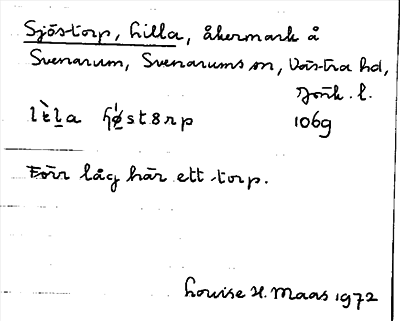 Sjöstorp, Lilla, åkermark å
Svenarum, Svenarums sn, Västra hd,
Jönk. l.
106g
Förr låg här ett torp.
Louise H. Maas 1972